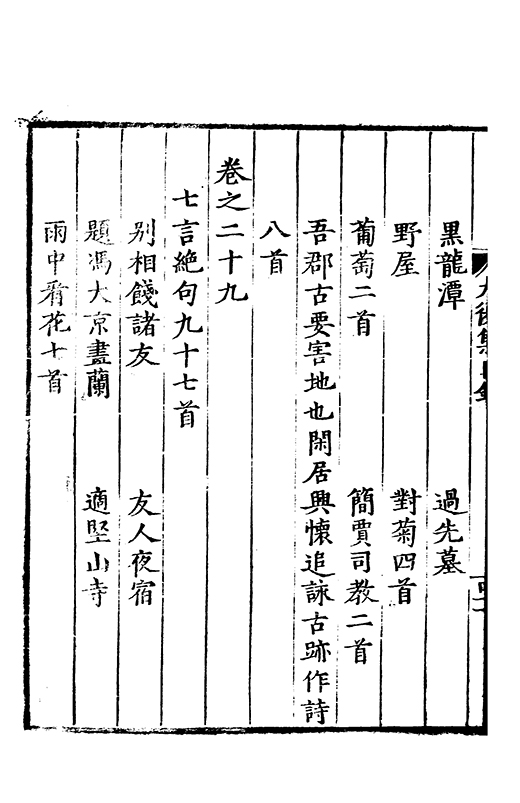 黒龍潭　過先墓
野屋　對菊四首
葡萄二首　簡賈司教二首
吾郡古要害地也閑居興懷追詠古跡作詩
八首
卷之二十九
七言絶句九十七首
别相餞諸友　友人夜宿
題馮大京畫蘭　適堅山寺
雨中看花十首